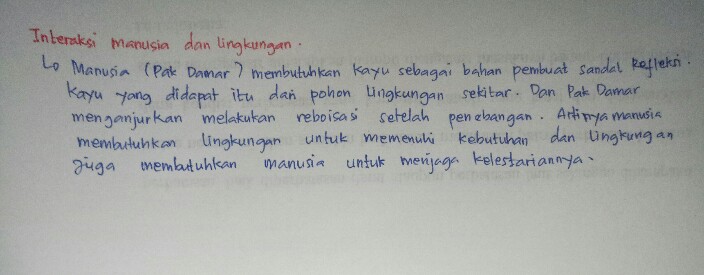 Interaksi manusia dan lingkungan.
↳ Manusia (Pak Damar) membutuhkan kayu sebagai bahan pembuat sandal Refleksi.
Kayu yang didapat itu dari pohon lingkungan sekitar. Dan Pak Damar
menganjurkan melakukan reboisasi setelah penebangan. Artinya manusia
membutuhkan lingkungan untuk memenuhi kebutuhan dan lingkungan
juga membutuhkan manusia untuk menjaga kelestariannya.